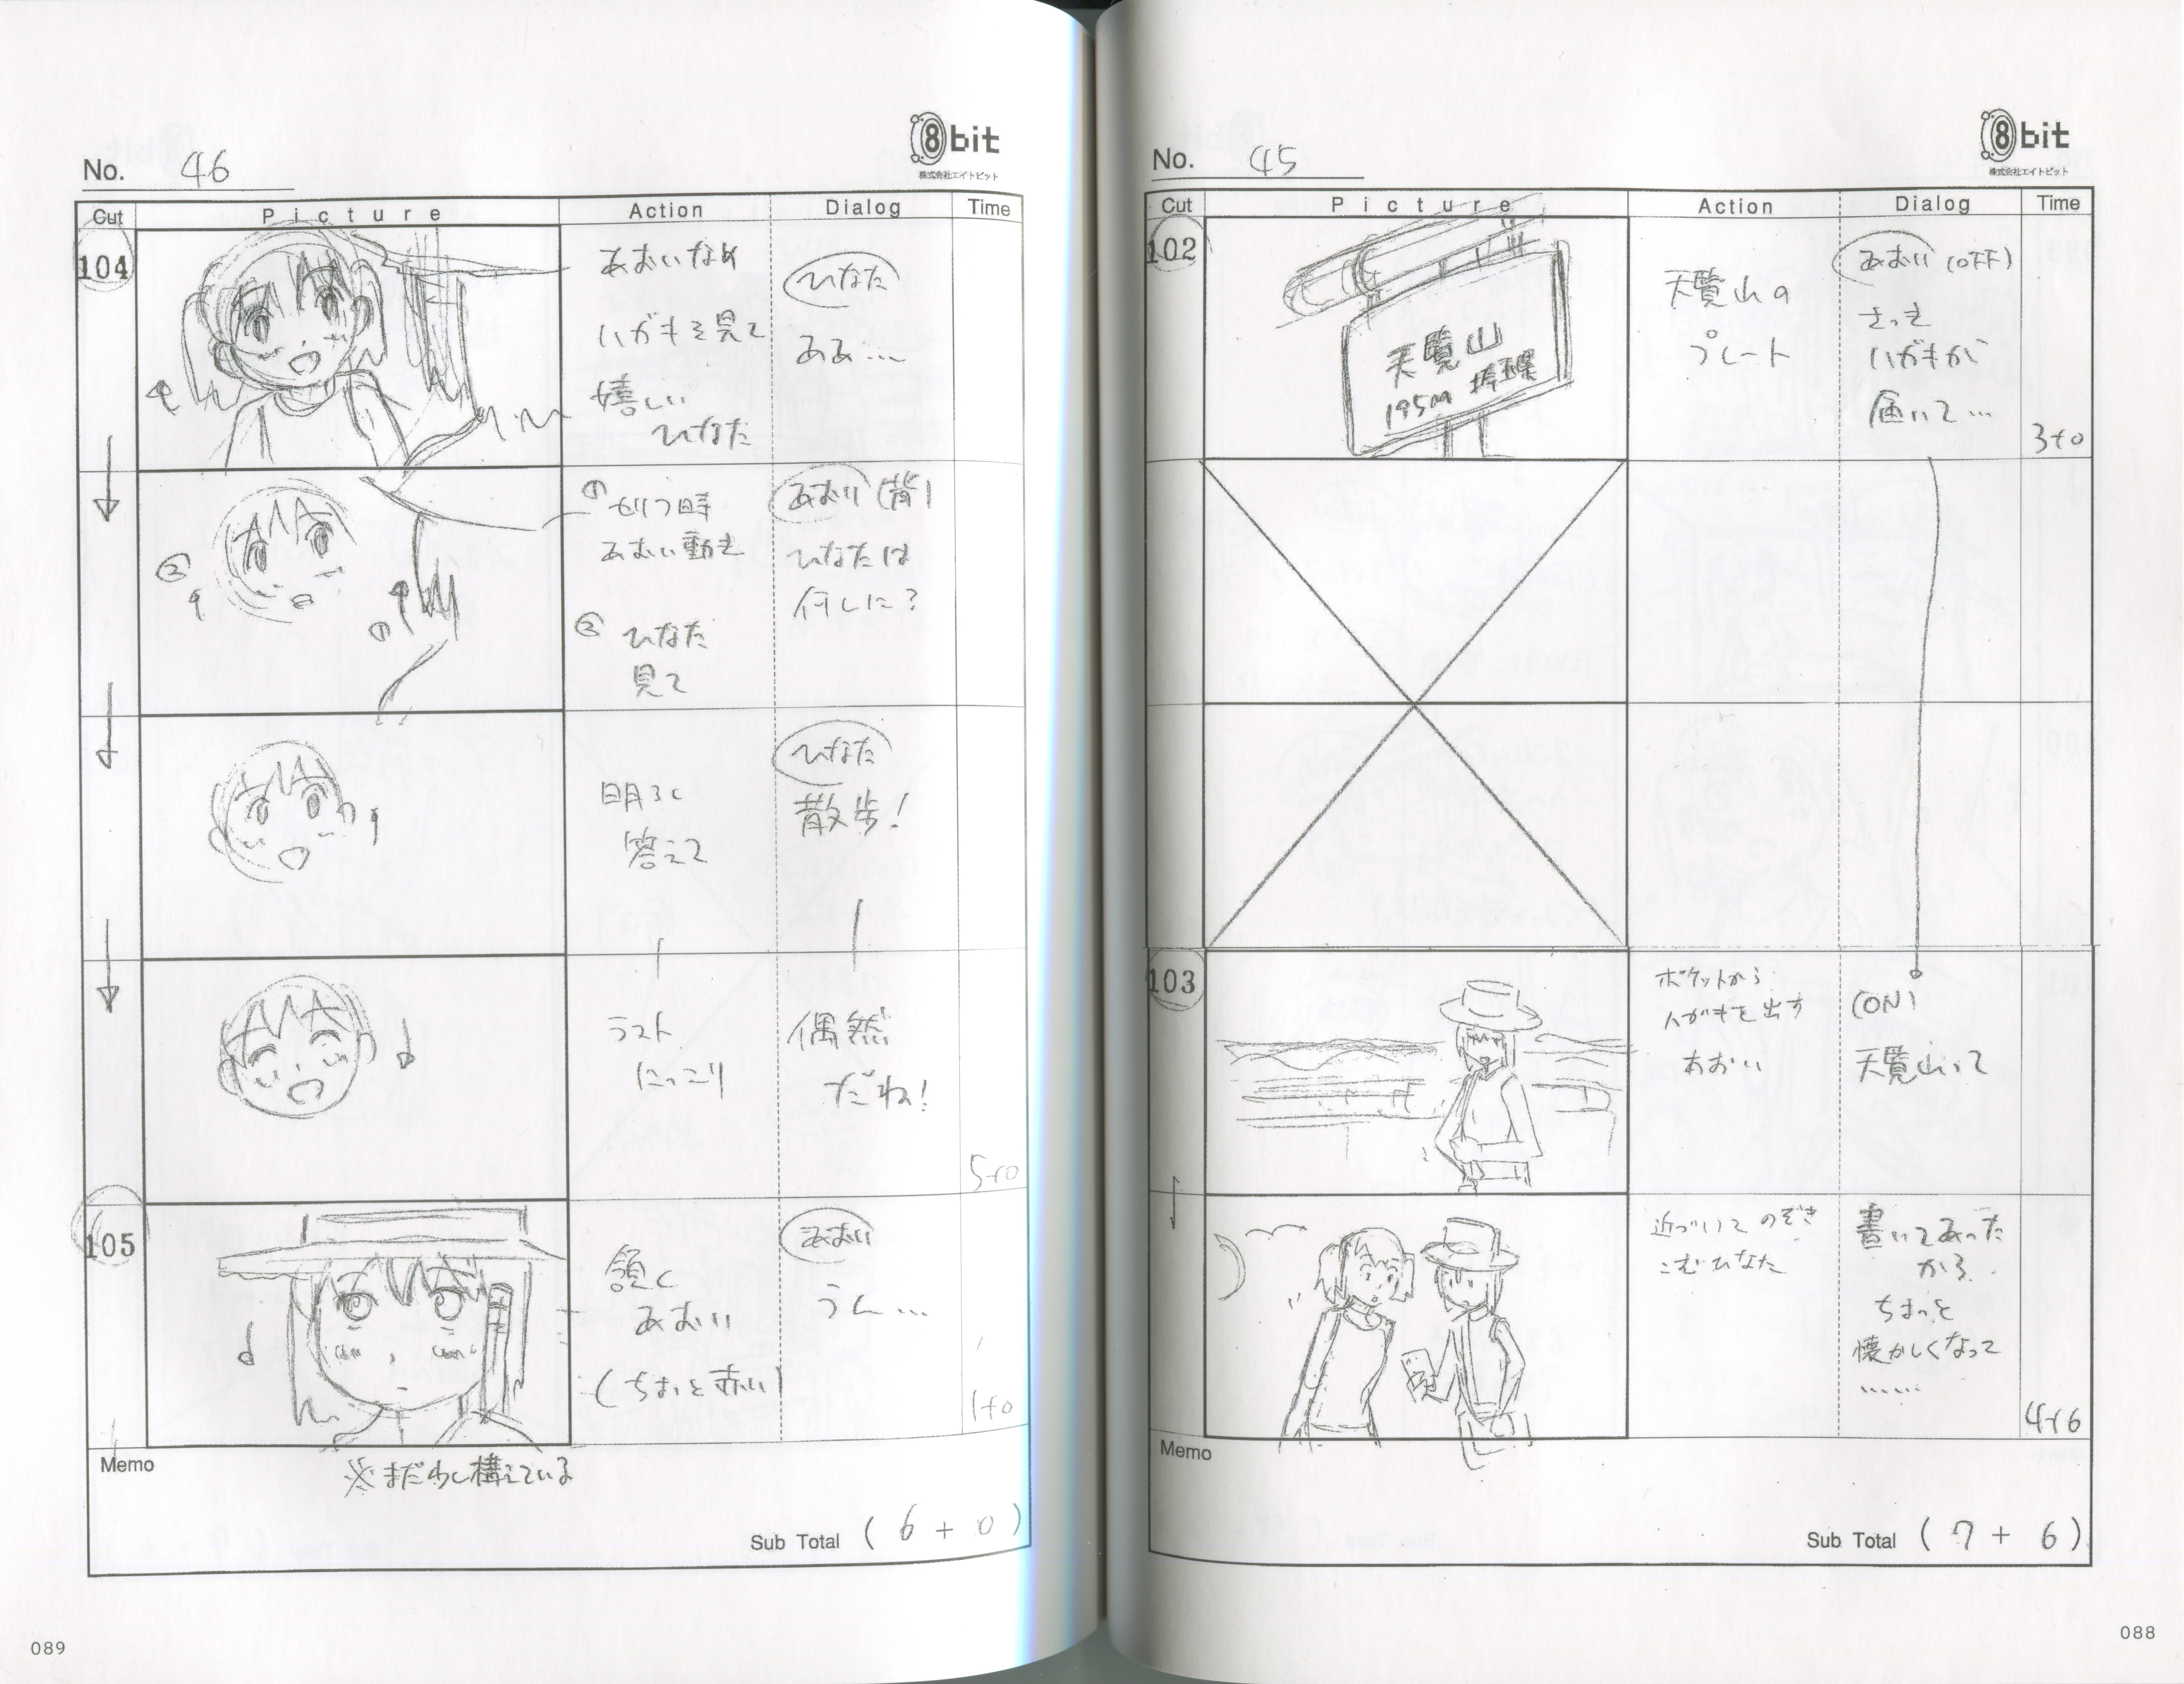 8bit
株式会社エイトビット
No. 45
Cut Picture Action Dialog Time
102
天覧山
195m
天覧山の
プレート
あおい (OFF)
さっき
ハガキが
届いて…
3+0
103
ポケットから
ハガキを出す
あおい
(ON)
天覧山って
近づいてのぞき
こむひなた
書いてあった
から…
ちょっと
懐かしくなって
……
4+6
Memo
Sub Total ( 7 + 6 )
088
8bit
株式会社エイトビット
No. 46
Cut Picture Action Dialog Time
104
あおいなめ
ハガキを見て
嬉しい
ひなた
ひなた
ああ…
① セリフ時
あおい動き
② ひなた
見て
②
①
あおい (背)
ひなたは
何しに?
明るく
答えて
ひなた
散歩!
ラスト
にっこり
偶然
だね!
5+0
105
頷く
あおい
(ちょっと赤い)
あおい
うん…
1+0
Memo
※まだ少し構えている
Sub Total ( 6 + 0 )
089